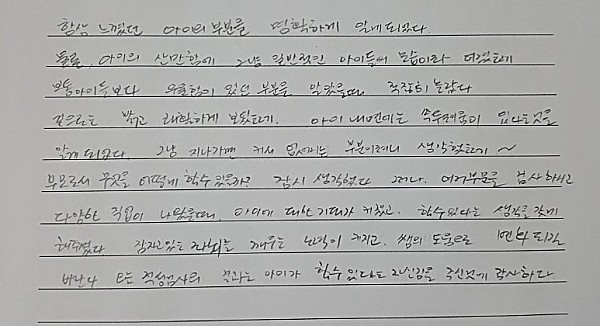 항상 느꼈던 아이의 부분을 명확하게 알게 되었다.
둘로, 아이의 산만함에 그냥 일반적인 아이들의 모습이라 여겼는데
보통아이들보다 우월함이 있던 부분을 알았을때, 굉장히 놀랐다
겉으로는 밝고 쾌활하게 보였는데. 아이 내면에는 두려움이 있다는것을
알게 되었다. 그냥 지나가면 커서 없어지는 부분이려니 생각했는데 ~
부모로서 무엇을 어떻게 할수 있을까? 잠시 생각했다 그러나. 여러부분을 검사하고
다양한 직업이 나왔을때. 아이에 대한 기대가 커졌고. 할수있다는 생각을 갖게
해주었다. 잠자고있는 자뇌를 깨우는 노력이 커지고. 쌤의 도움으로 변화 되길
바란다 또는 적성검사의 결과는 아이가 할수 있다는 자신감을 주신것에 감사하다.